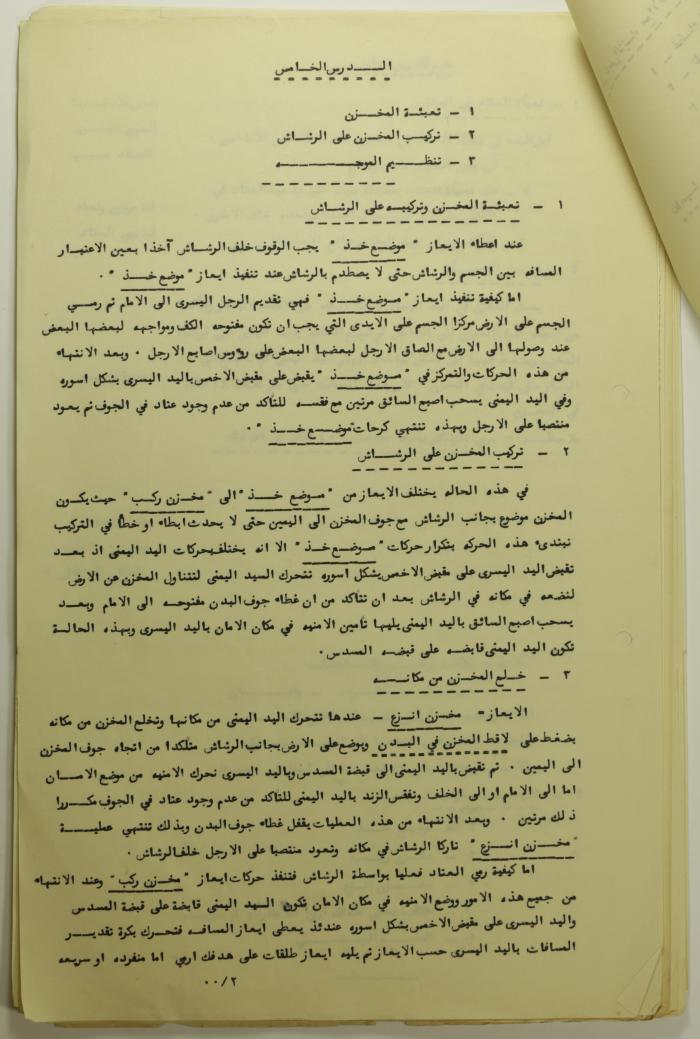 الـــدرس الخامس
١ - تعبئة المخزن
٢ - تركيب المخزن على الرشاش
٣ - تنظيم الموجه
١ - تعبئة المخزن وتركيبه على الرشاش
عند اعطاء الايعاز " موضع خذ " يجب الوقوف خلف الرشاش آخذا بعين الاعتبار
المسافه بين الجسم والرشاش حتى لا يصطدم بالرشاش عند تنفيذ ايعاز " موضع خذ " .
اما كيفية تنفيذ ايعاز " موضع خذ " فهي تقديم الرجل اليسرى الى الامام ثم رمي
الجسم على الارض مركزا الجسم على الايدى التي يجب ان تكون مفتوحه الكف ومواجهه لبعضها البعض
عند وصولها الى الارض مع الصاق الارجل لبعضها البعض على رؤوس اصابع الارجل . وبعد الانتهاء
من هذه الحركات والتمركز في " موضع خذ " يقبض على مقبض الاخمص باليد اليسرى بشكل اسوره
وفي اليد اليمنى يسحب اصبع السائق مرتين مع فقسه للتأكد من عدم وجود عتاد في الجوف ثم يعود
منتصبا على الارجل وبهذه تنتهي كرحات " موضع خذ " .
٢ - تركيب المخزن على الرشاش
في هذه الحاله يختلف الايعاز من " موضع خذ " الى " مخزن ركب " حيث يكون
المخزن موضوع بجانب الرشاش مع جوف المخزن الى اليمين حتى لا يحدث ابطاء او خطأ في التركيب
نبتدىء هذه الحركه بتكرار حركات " موضع خذ " الا انه يختلف بحركات اليد اليمنى اذ بعد
تقبض اليد اليسرى على مقبض الاخمص بشكل اسوره تتحرك السيد اليمنى لتتناول المخزن عن الارض
لنضعه في مكانه في الرشاش بعد ان تتاكد من ان غطاء جوف البدن مفتوحه الى الامام وبعد
يسحب اصبع السائق باليد اليمنى يليها تامين الامنيه في مكان الامان باليد اليسرى وبهذه الحالة
تكون اليد اليمنى قابضه على قبضه المسدس .
٣ - خلع المخزن من مكانه
الايعاز - مخزن انزع - عندها تتحرك اليد اليمنى من مكانها وتخلع المخزن من مكانه
بضغط على لاقط المخزن في البدن ويوضع على الارض بجانب الرشاش متلكدا من اتجاه جوف المخزن
الى اليمين . ثم نقبض باليد اليمنى الى قبضة المسدس وباليد اليسرى نحرك الامنيه من موضع الامان
اما الى الامام او الى الخلف ونفقس الزند باليد اليمنى للتاكد من عدم وجود عتاد في الجوف مكررا
ذلك مرتين . وبعد الانتهاء من هذه العمليات يقفل غطاء جوف البدن وبذلك تنتهي عملية
" مخزن انزع " تاركا الرشاش في مكانه وتعود منتصبا على الارجل خلف الرشاش .
اما كيفية رمي العتاد فعليا بواسطة الرشاش فتنفذ حركات ايعاز " مخزن ركب " وعند الانتهاء
من جميع هذه الامور ووضع الامنيه في مكان الامان تكون اليد اليمنى قابضة على قبضة المسدس
واليد اليسرى على مقبض الاخمص بشكل اسوره عندئذ يعطى ايعاز المسافه فتحرك بكرة تقدير
المسافات باليد اليسرى حسب الايعاز ثم يليه ايعاز طلقات على هدفك ارمي اما منفرده او سريعه
٠٠/٢